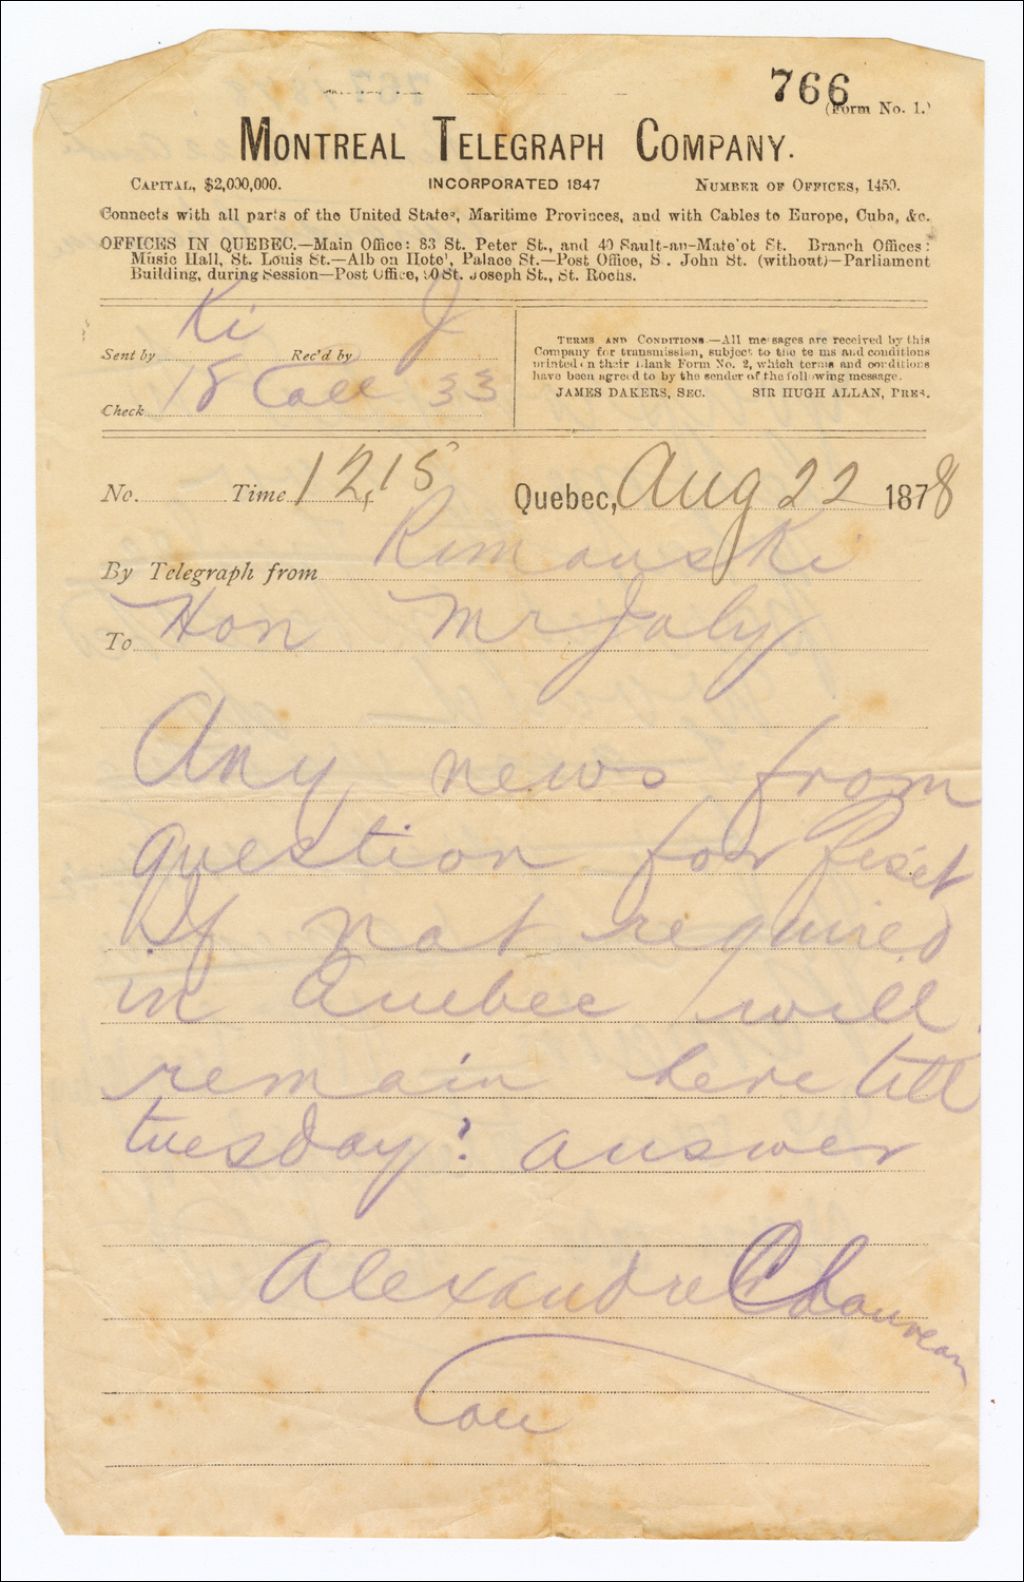 766
(Form No. 1.)
MONTREAL TELEGRAPH COMPANY.
CAPITAL, $2,000,000. INCORPORATED 1847 NUMBER OF OFFICES, 1450.
Connects with all parts of the United States, Maritime Provinces, and with Cables to Europe, Cuba, &c.
OFFICES IN QUEBEC.—Main Office: 83 St. Peter St., and 40 Sault-au-Matelot St. Branch Offices:
Music Hall, St. Louis St.—Albion Hotel, Palace St.—Post Office, S. John St. (without)—Parliament
Building, during Session—Post Office, St. Joseph St., St. Rochs.
Sent by Ki Rec'd by J
Check 18 Coll 33
TERMS AND CONDITIONS.—All messages are received by this
Company for transmission, subject to the terms and conditions
printed on their Blank Form No. 2, which terms and conditions
have been agreed to by the sender of the following message.
JAMES DAKERS, SEC. SIR HUGH ALLAN, PRES.
No. Time 12,15 Quebec, Aug 22 1878
By Telegraph from Rimouski
To Hon Mr Joly
Any news from
question for Fiset
If not required
in Quebec will
remain here till
tuesday? answer
Alexandre Chauveau